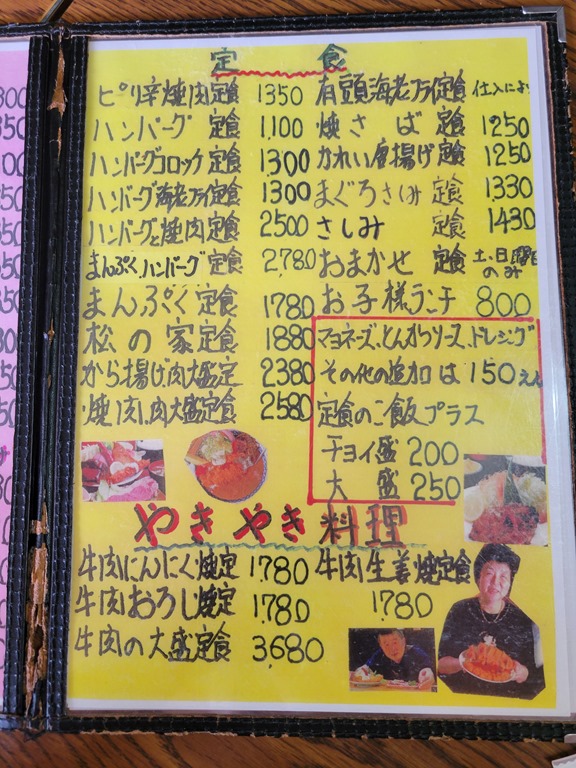 定食
ピリ辛焼肉定食 1350
ハンバーグ 定食 1,100
ハンバーグコロッケ定食 1300
ハンバーグ海老フライ定食 1300
ハンバーグと焼肉定食 2500
まんぷくハンバーグ定食 2,780
まんぷく定食 1780
松の家定食 1880
から揚げ肉大盛定 2380
焼肉、肉大盛定食 2580
有頭海老フライ定食 仕入により
焼さば定食 1250
かれい唐揚げ定食 1250
まぐろさしみ定食 1330
さしみ 定食 1430
おまかせ 定食 土・日曜日のみ
お子様ランチ 800
マヨネーズ、とんかつソース、ドレシング
その他の追加は150えん
定食のご飯プラス
チョイ盛 200
大盛 250
やきやき料理
牛肉にんにく焼定 1780
牛肉おろし焼定 1,780
牛肉の大盛定食 3,680
牛肉生姜焼定食
1780